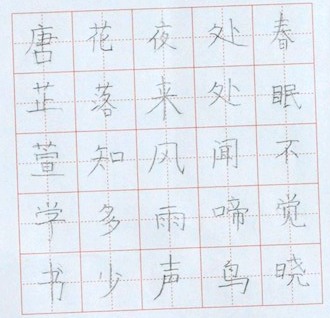 春眠不觉晓
处处闻啼鸟
夜来风雨声
花落知多少
唐芷萱学书